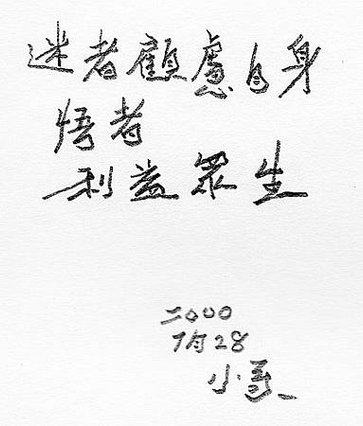 迷者顧慮自身
悟者
利益眾生
二000
7月28
小